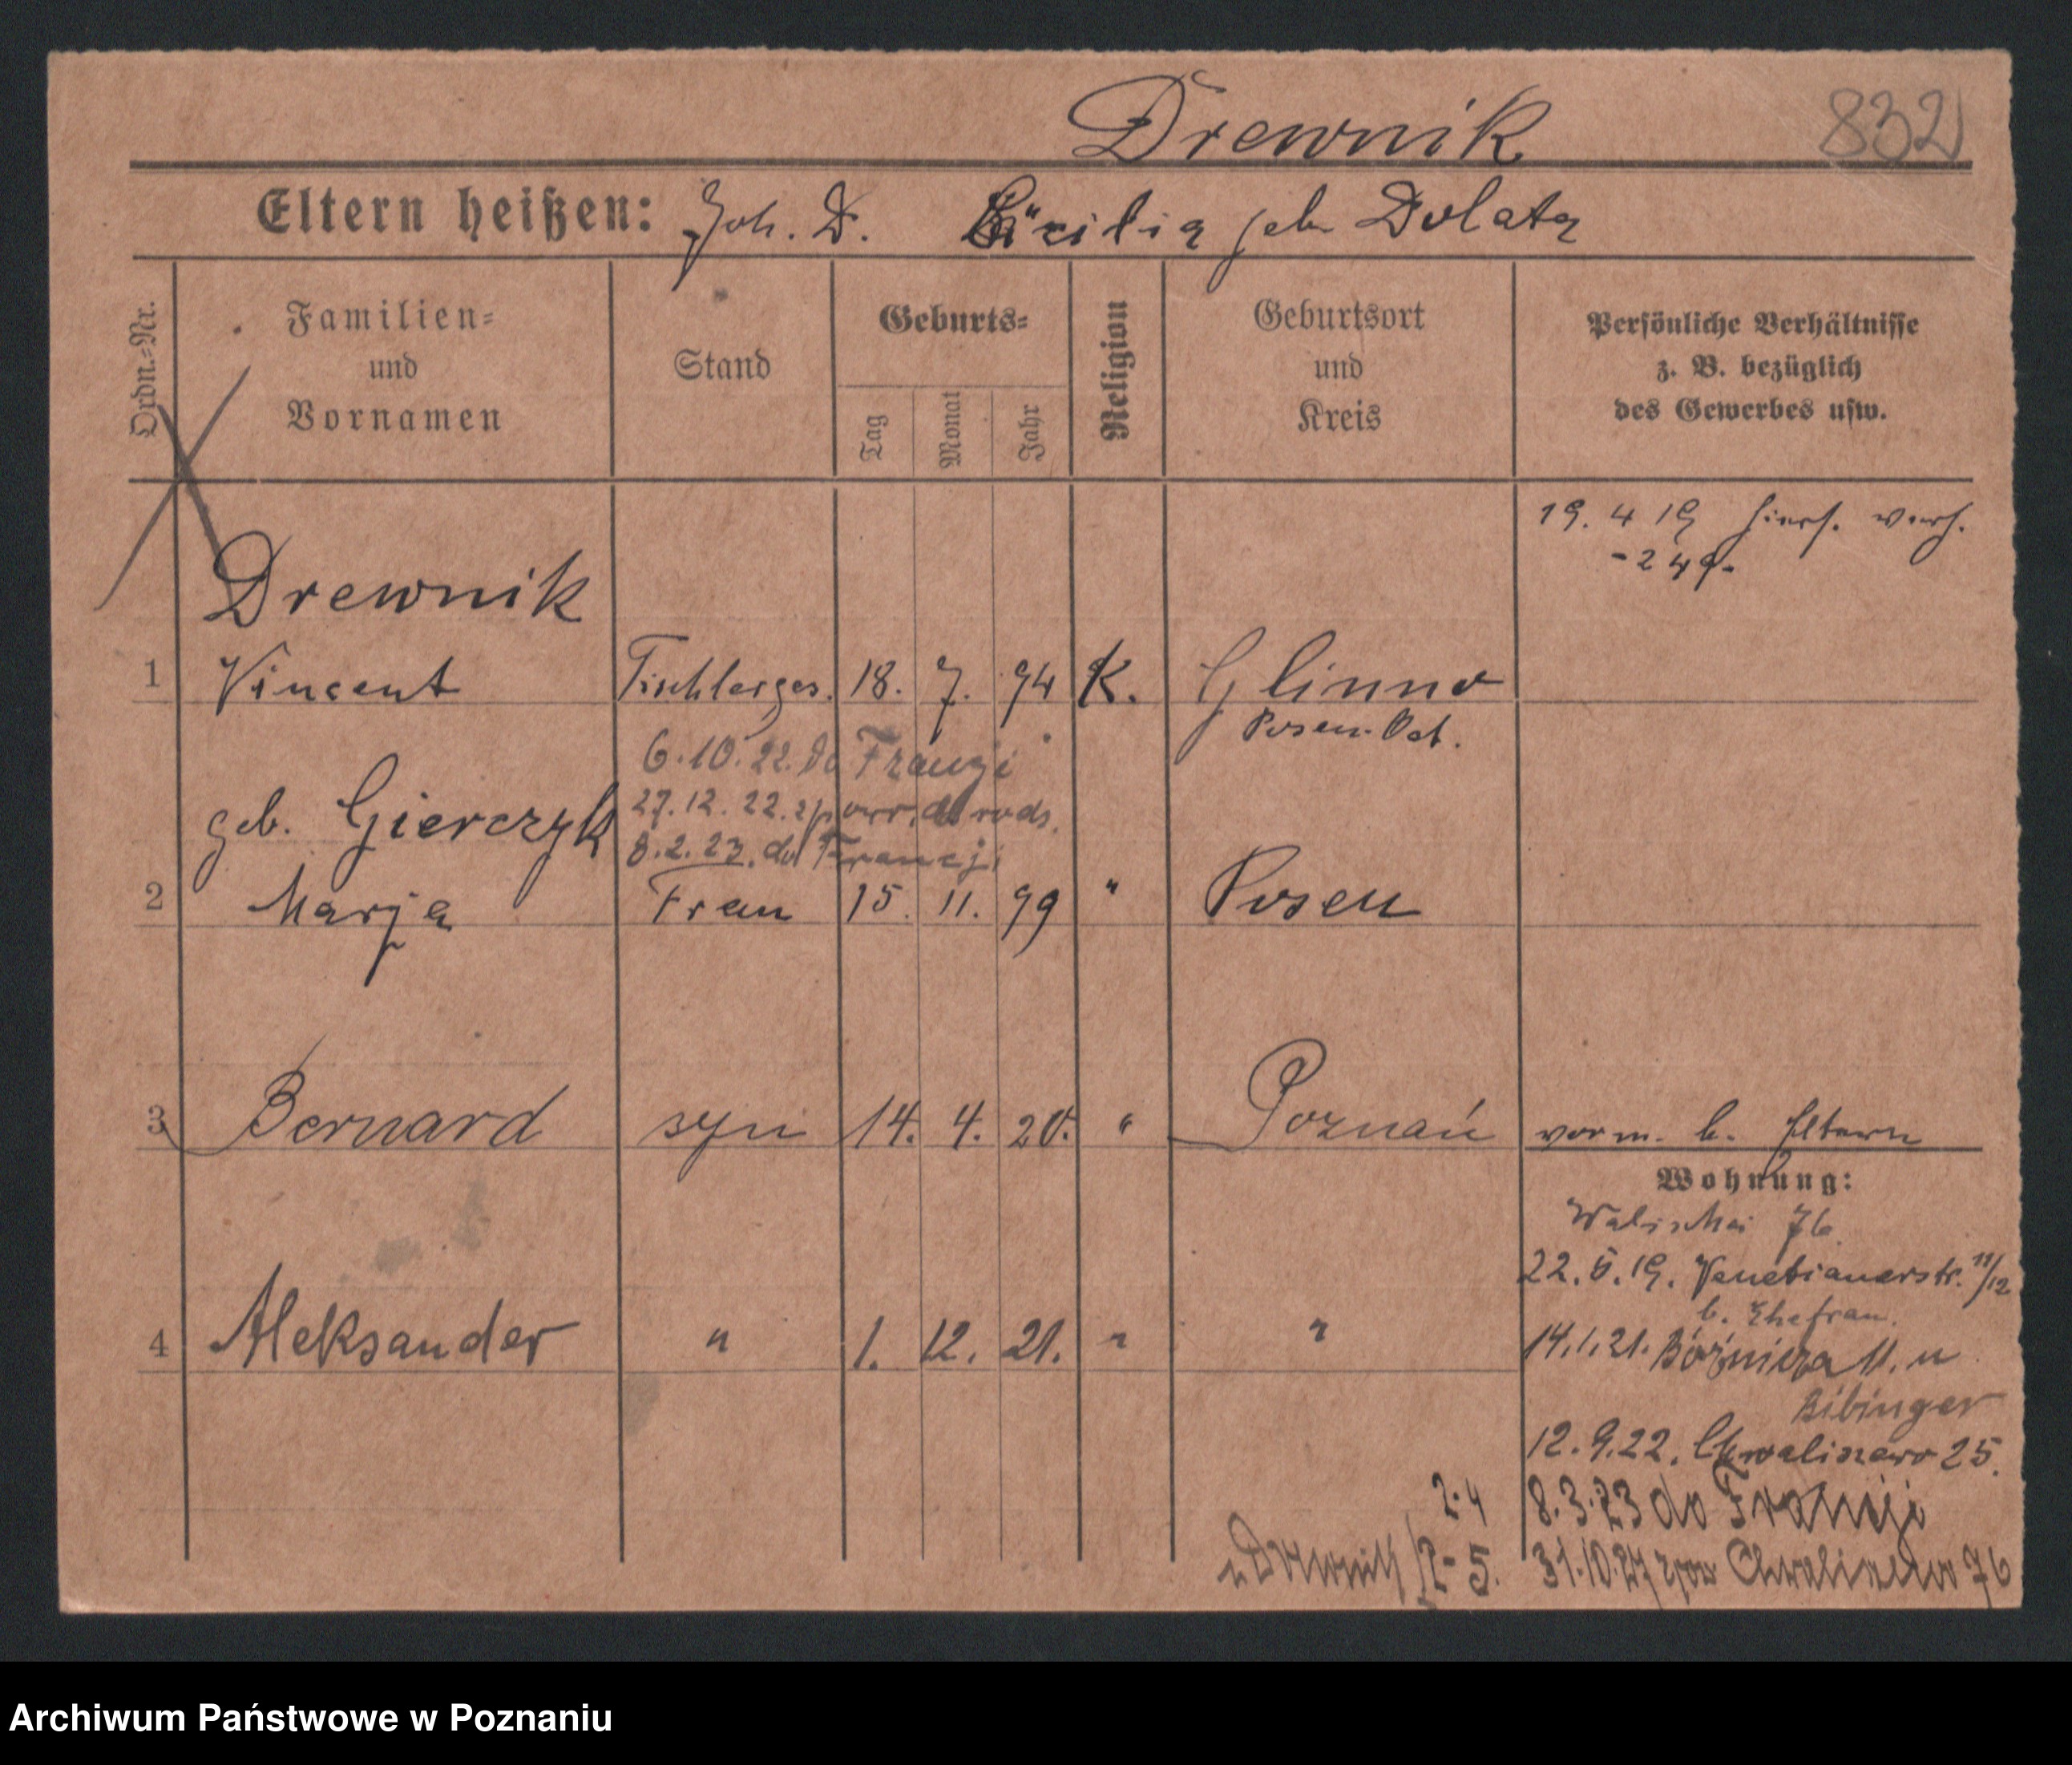 Drewnik
832
Eltern heißen: Joh. D. Cäcilia geb Dolata
Ordn.-Nr.
Familien-
und
Vornamen
Stand
Geburts-
Tag
Monat
Jahr
Religion
Geburtsort
und
Kreis
Persönliche Verhältnisse
z. B. bezüglich
des Gewerbes usw.
19. 4 19 hiers. verh.
Drewnik
1 Vincent Tischlerges. 18. 7. 94 K. Glinno
Posen-Ost.
6.10.22. do Francji
27.12.22. do rodz.
8.2.23. do Francji
geb. Gierczyk
2 Marja Frau 15. 11. 99 " Posen
3 Bernard syn 14. 4. 20. " Poznań
vorm. b. Eltern
Wohnung:
Wallischei 76
22.5.19. Venetianerstr. 11/12
b. Ehefrau.
4 Aleksander " 1. 12. 21. " "
14.1.21. Bóżnicza 11. u
Bibinger
12.9.22. Chwaliszewo 25.
2-4
8.3.23 do Francji
Drewnik 2-5.
31.10.27 Chwaliszewo 76
Archiwum Państwowe w Poznaniu